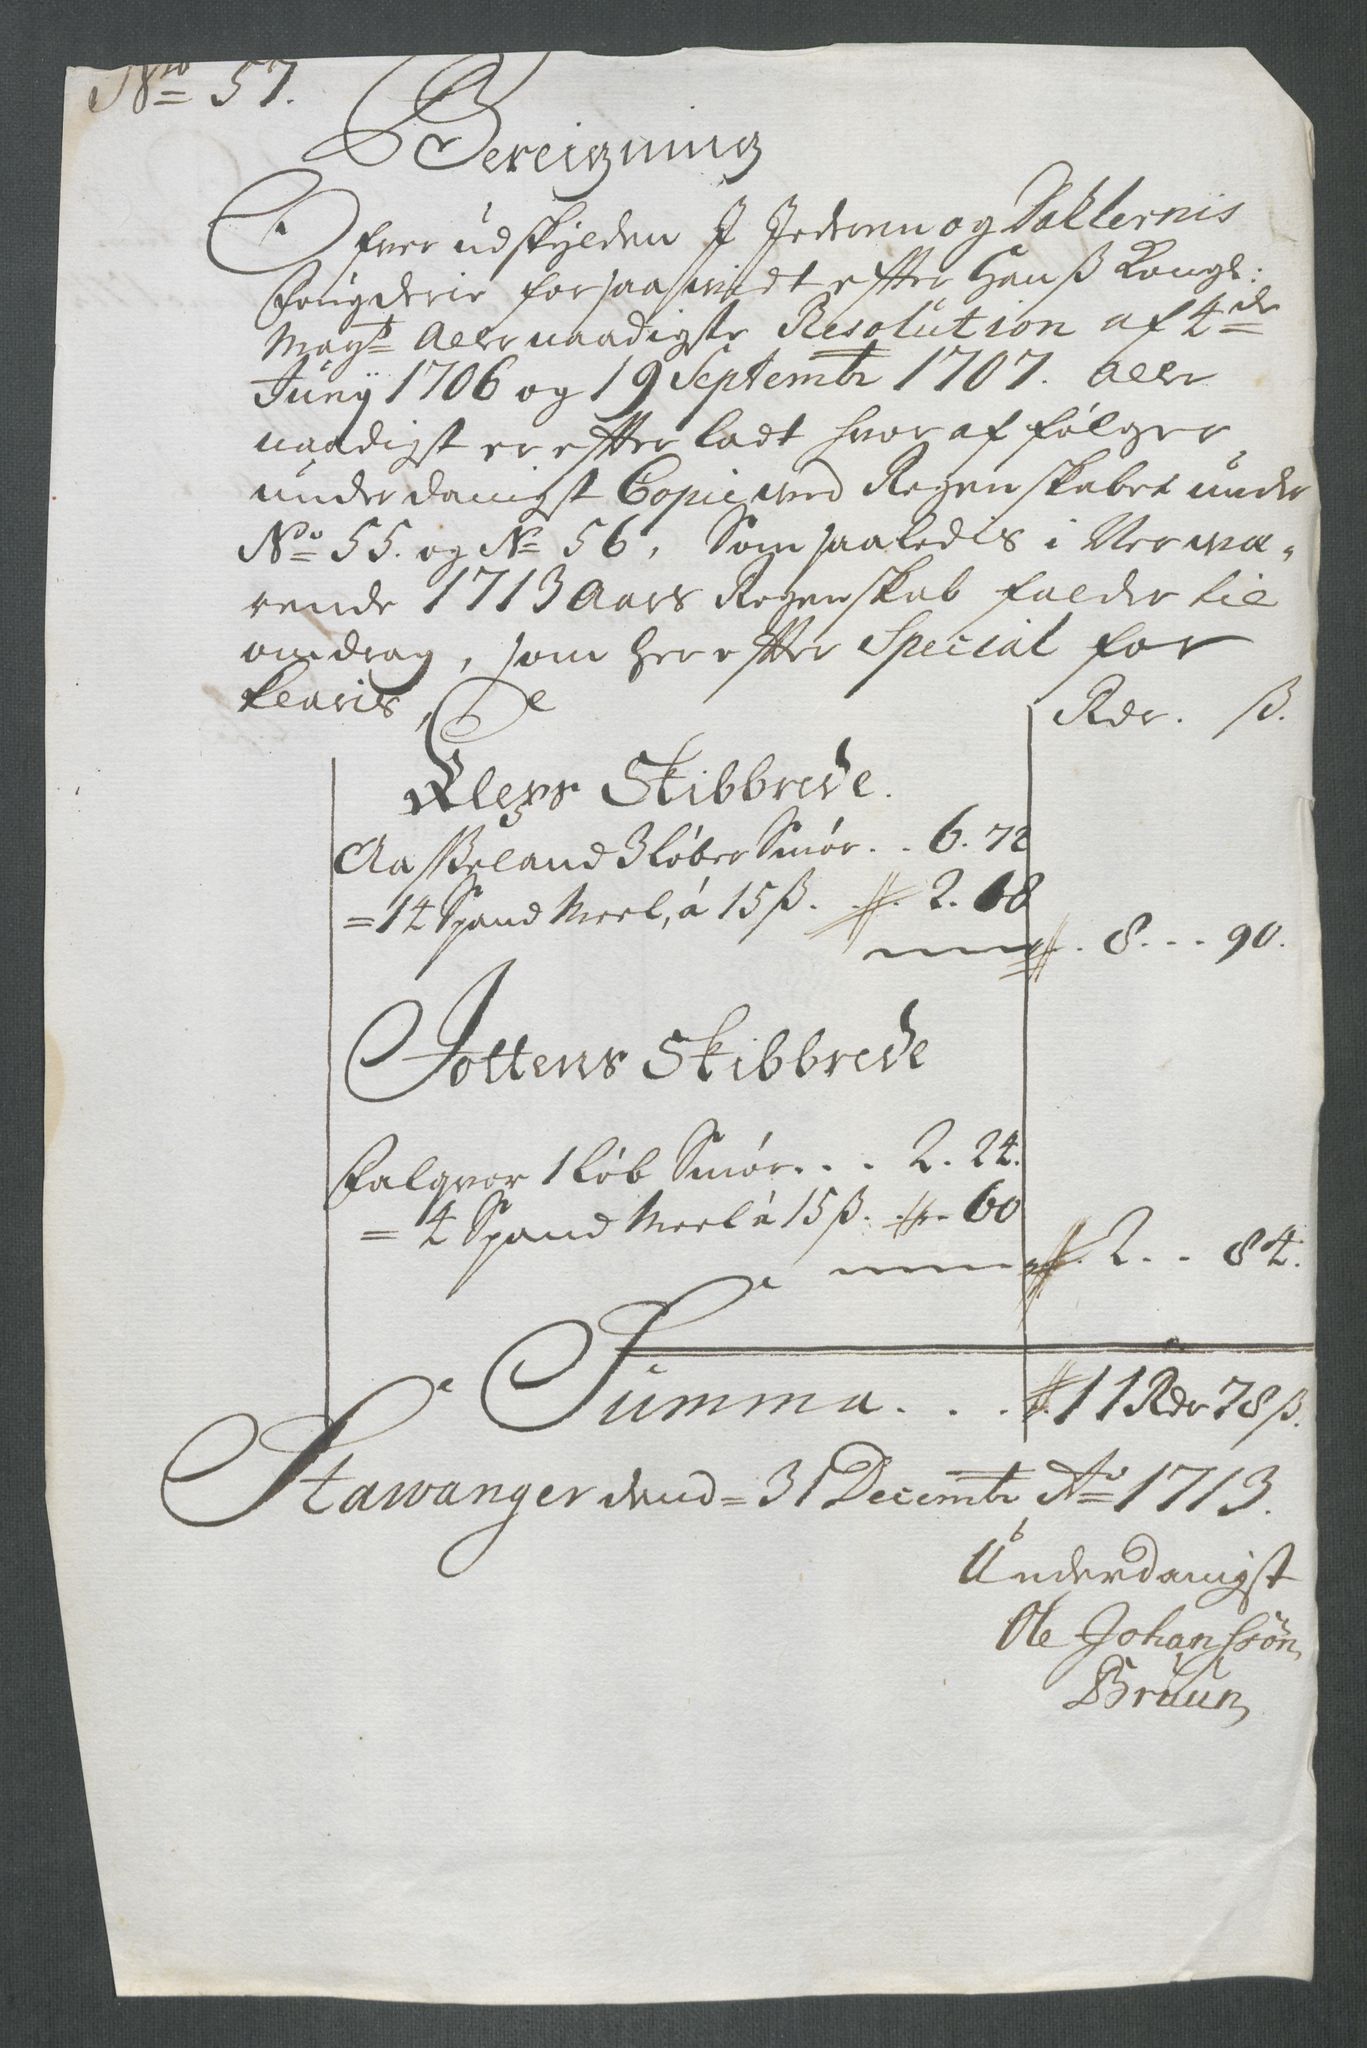 No 57.
Bereigning
Ofver udskylden J Jederen og Dahlernis
Fougderie forsaawidt efter Hanß Kongl:
Mayts allernaadigste Resolution af 4de
Junij 1706 og 19 Septembr 1707. aller
naadigst er efterladt hvor af følger
underdanigst Copie wed Regenskabet under
No 55. og No 56, Som saaledis i Nerwa,
rende 1713 Aars Regenskab falder til
omdrag, som her efter Special for
klaris,
Rdr. ß.
Kleps Skibbrede.
Aasseland 3 løber Smør . . 6. 72
= 14 Spand Meel, á 15 ß. . 2. 18
8 . . . 90.
Jottens Skibbrede
Falgvor 1 løb Smør . . . 2. 24.
= 4 Spand Meel á 15 ß. . 60
2 . . 84.
Summa . . . 11 Rdr 78 ß.
Stawanger dend = 31 Decembr Ao 1713.
Underdanigst
Ole Johanssøn
Bruun